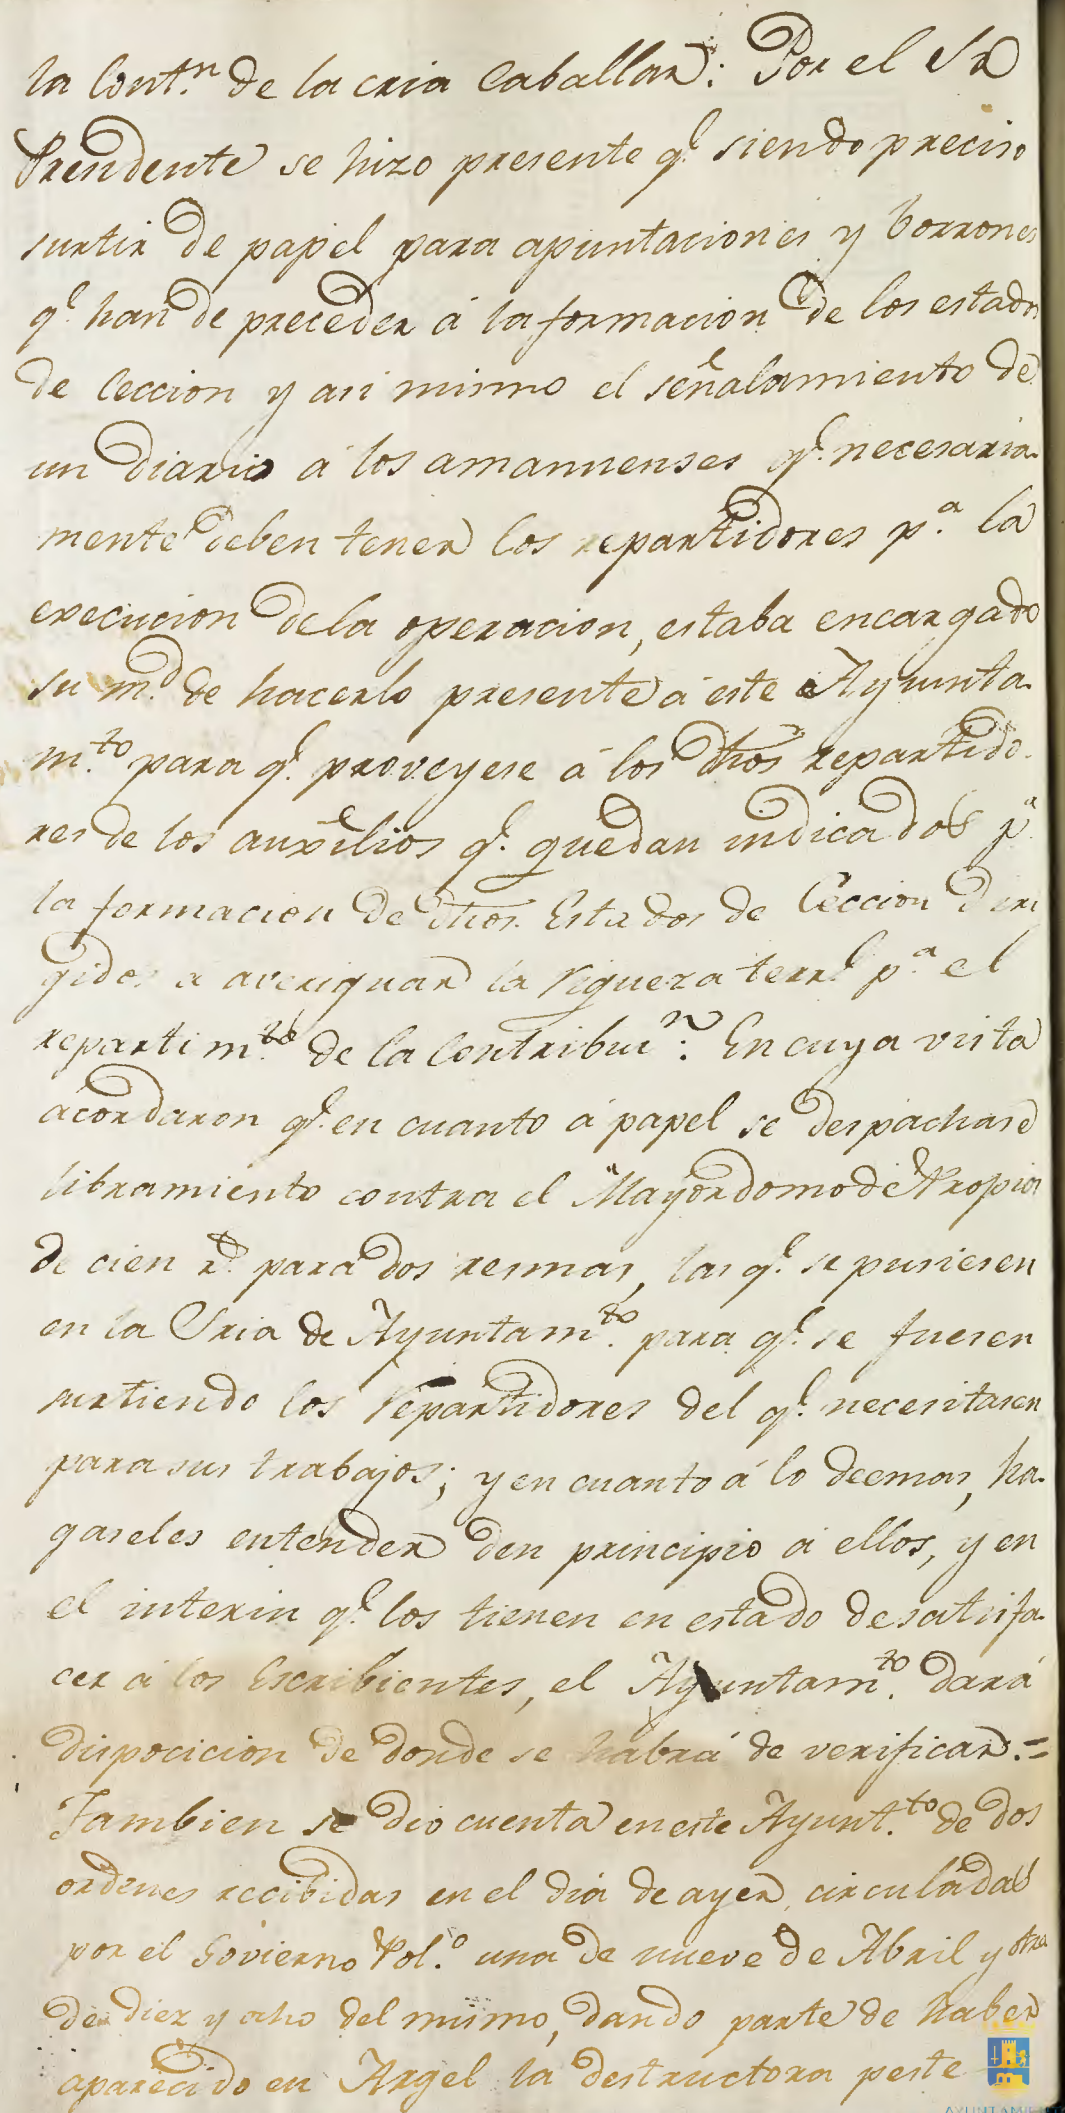 la Cont.n de la cria Caballar: Por el Sr
Presidente se hizo presente q.e siendo preciso
surtir de papel para apuntaciones y borrones
q.e han de preceder á la formacion de los estados
de Ceccion y asi mismo el señalamiento de
un diario á los amanuenses q.e necesaria-
mente deben tener los repartidores p.a la
execucion de la operacion, estaba encargado
su m.d de hacerlo presente á este Ayunta-
m.to para q.e proveyese á los dhos repartido-
res de los auxilios q.e quedan indicados p.a
la formacion de dhos. Estados de Ceccion diri
gidos a averiguar la riqueza terr.l p.a el
repartim.to de la Contribui.n: En cuya vista
acordaron q.e en cuanto á papel se despachase
libramiento contra el Mayordomo de Propios
de cien r.s para dos resmas, las q.e se pusiesen
en la Sria de Ayuntam.to para q.e se fuesen
surtiendo los Repartidores del q.e necesitasen
para sus trabajos; y en cuanto á lo deemas, ha-
gaseles entender den principio á ellos, y en
el interin q.e los tienen en estado de satisfa-
cer á los Escribientes, el Ayuntam.to dará
disposicion de donde se habrá de verificar.=
Tambien se dio cuenta en este Ayunt.to de dos
ordenes recibidas en el dia de ayer, circuladas
por el Govierno Pol.o una de nueve de Abril y otra
de diez y ocho del mismo, dando parte de haber
aparecido en Argel la destructora peste
AYUNTAMIENTO